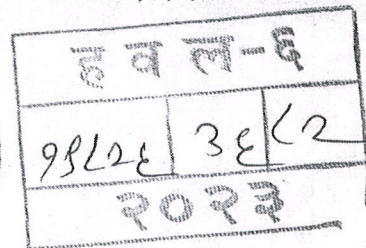 ह व ल-६
१९८२६ ३६ ८२
२०२३